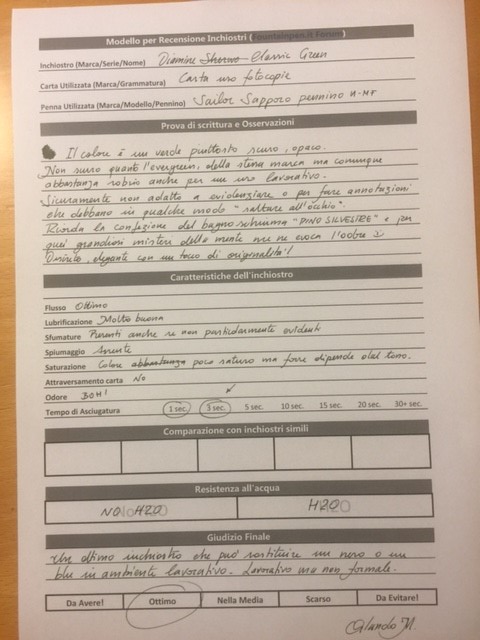 Modello per Recensione Inchiostri (Fountainpen.it Forum)
Inchiostro (Marca/Serie/Nome) Diamine Classic Green
Carta Utilizzata (Marca/Grammatura) Carta uso fotocopie
Penna Utilizzata (Marca/Modello/Pennino) Sailor Sapporo pennino H-MF
Prova di scrittura e Osservazioni
Il colore è un verde piuttosto scuro, opaco.
Non scuro quanto l'evergreen, della stessa marca ma comunque
abbastanza sobrio anche per un uso lavorativo.
Sicuramente non adatto a evidenziare o per fare annotazioni
che debbano in qualche modo "saltare all'occhio".
Ricorda la confezione del bagnoschiuma "PINO SILVESTRE" e per
quei grandiosi misteri della mente me ne evoca l'odore
Diverso, elegante con un tocco di originalità!
Caratteristiche dell'inchiostro
Flusso Ottimo
Lubrificazione Molto buona
Sfumature Presenti anche se non particolarmente evidenti
Spiumaggio Assente
Saturazione Colore abbastanza poco saturo ma forse dipende dal tono.
Attraversamento carta No
Odore BOH!
Tempo di Asciugatura 1 sec. 3 sec. 5 sec. 10 sec. 15 sec. 20 sec. 30+ sec.
Comparazione con inchiostri simili
Resistenza all'acqua
NO H2O H2O
Giudizio Finale
Un ottimo inchiostro che può sostituire un nero o un
blu in ambiente lavorativo. Lavorativo ma non formale.
Da Avere! Ottimo Nella Media Scarso Da Evitare!
Orlando M.